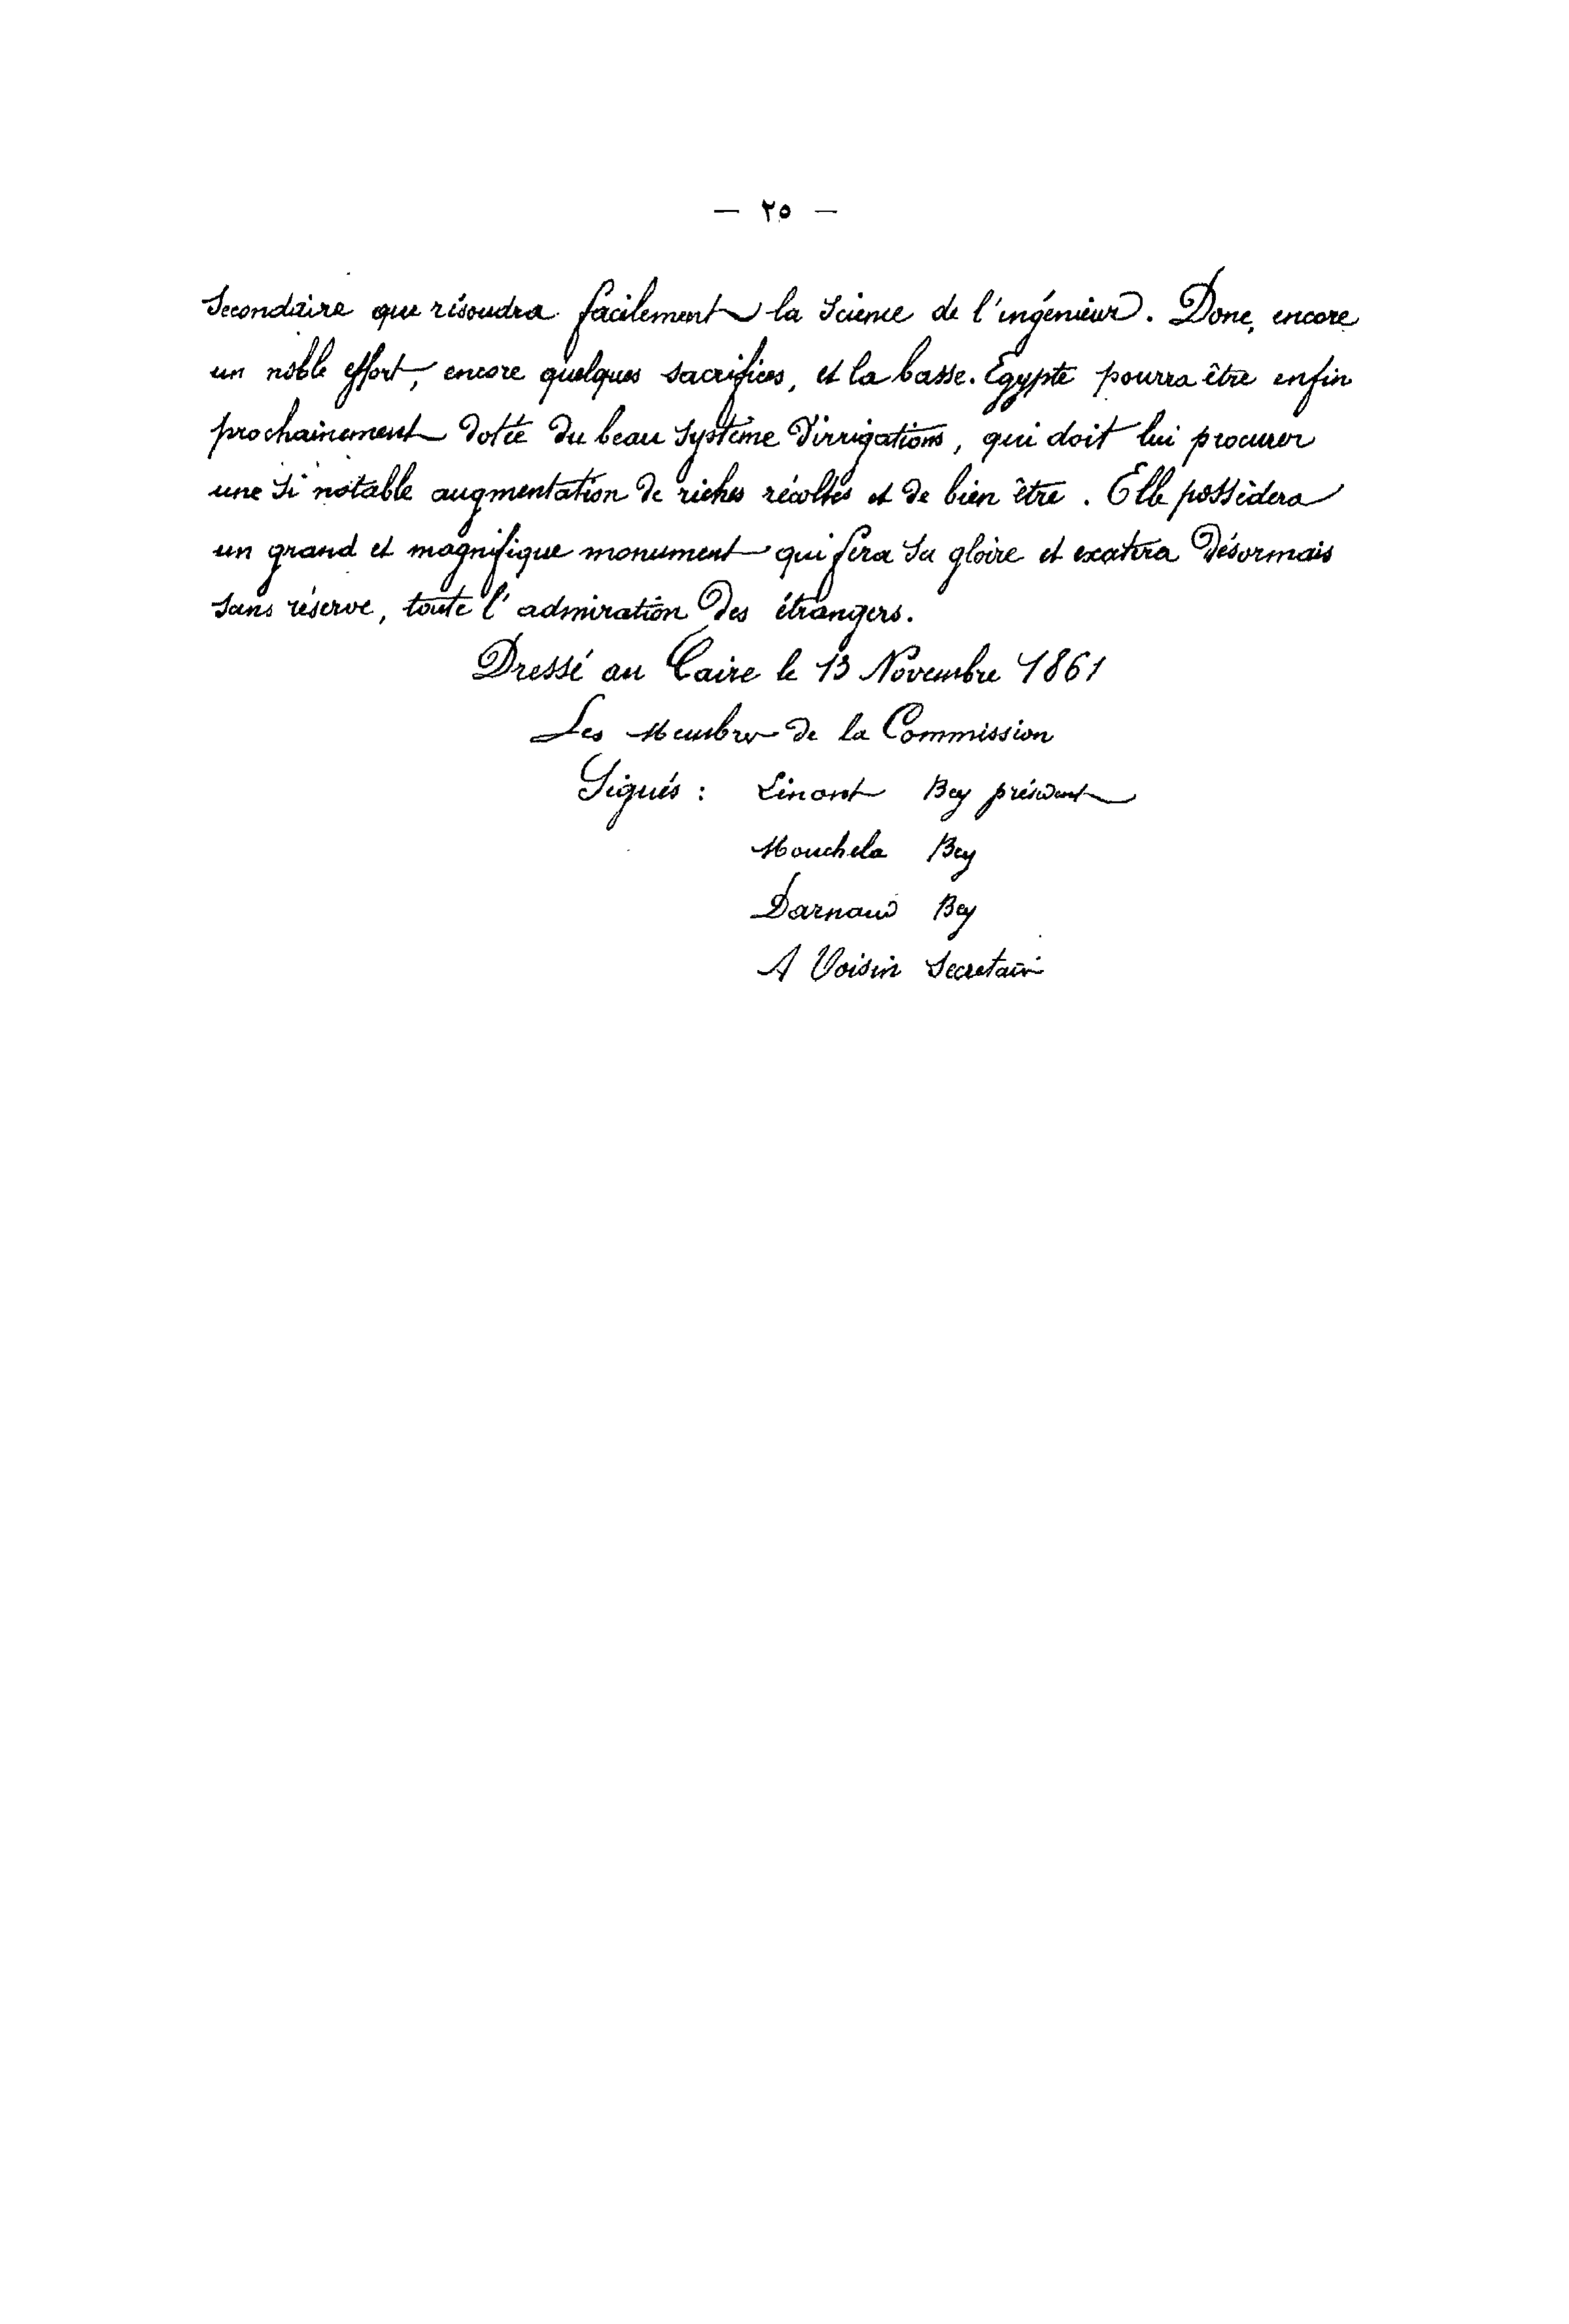 — ٢٥ —
Secondaire que résoudra facilement la Science de l'ingénieur. Donc, encore
un noble effort, encore quelques sacrifices, et la basse. Egypte pourra être enfin
prochainement dotée du beau Système d'irrigations, qui doit lui procurer
une Si notable augmentation de riches récoltes et de bien être. Elle possèdera
un grand et magnifique monument qui fera Sa gloire et désormais
Sans réserve, toute l'admiration des étrangers.
Dressé au Caire le 13 Novembre 1861
Les Membres de la Commission
Signés : Linant Bey président
Mouchela Bey
Darnaud Bey
A Voisin Secretaire